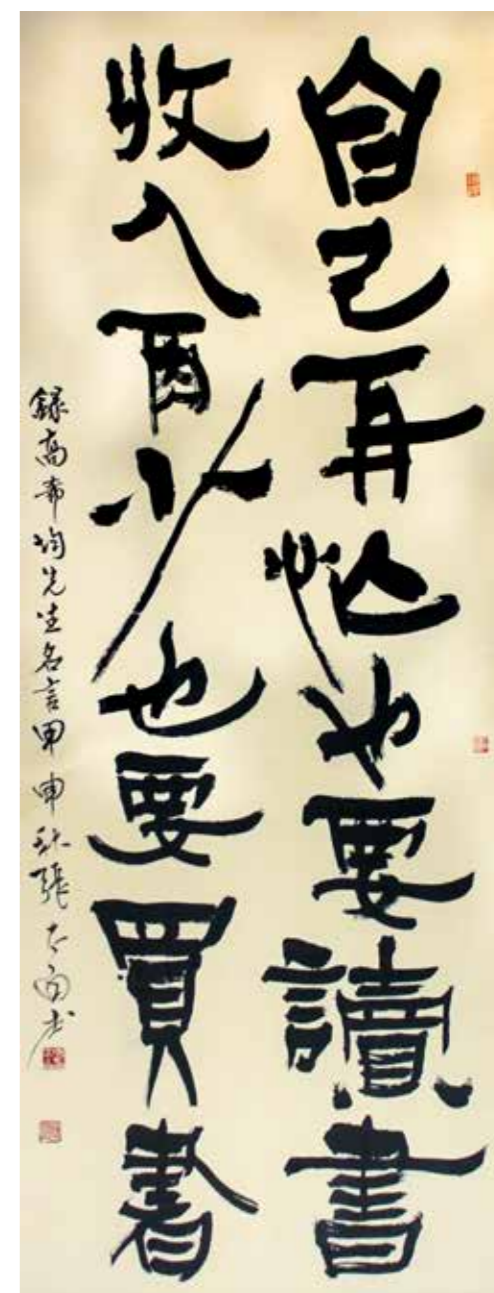 自己再忙也要讀書
收入再少也要買書
錄高希均先生名言甲申秋張大白书